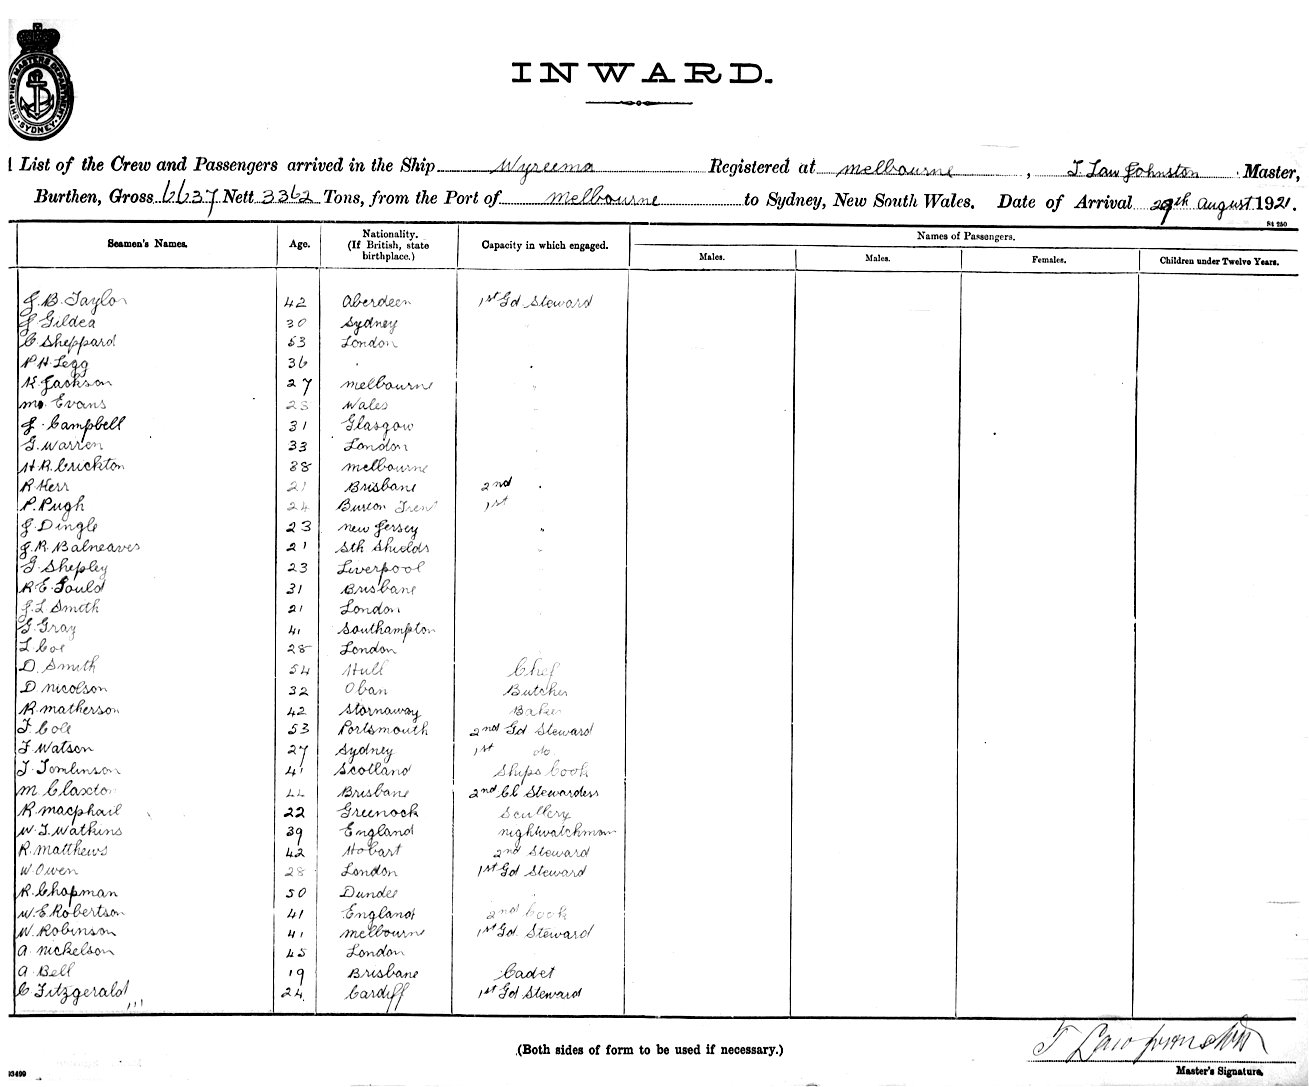 SHIPPING MASTERS DEPARTMENT SYDNEY
INWARD.
List of the Crew and Passengers arrived in the Ship Wyreema Registered at Melbourne, T Law Johnston Master,
Burthen, Gross 6637 Nett 3362 Tons, from the Port of Melbourne to Sydney, New South Wales. Date of Arrival 29th August 1921.
St 250
Seamen's Names. Age. Nationality. (If British, state birthplace.) Capacity in which engaged. Names of Passengers.
Males. Males. Females. Children under Twelve Years.
J. B. Taylor 42 Aberdeen 1st Gd Steward
J Gildea 30 Sydney
C Sheppard 53 London
P H Legg 36
K Jackson 27 Melbourne
Evans 28 Wales
J. Campbell 31 Glasgow
G. Warren 33 London
H R. Crickton 38 Melbourne
R Kerr 21 Brisbane 2nd
P. Pugh 24 Burton Trent 1st
J. Dingle 23 New Jersey
J. R. Balneaves 21 Sth Shields
G. Shepley 23 Liverpool
R E. Gould 31 Brisbane
J. L Smith 21 London
G. Gray 41 Southampton
L Coe 28 London
D. Smith 54 Hull Chef
D. Nicolson 32 Oban Butcher
R. Matherson 42 Stornaway Baker
F. Cole 53 Portsmouth 2nd Gd Steward
F Watson 27 Sydney 1st do
T. Tomlinson 41 Scotland Ships Cook
M. Claxton 44 Brisbane 2nd Cl Stewardess
R. Macphail 22 Greenock Scullery
W. J. Watkins 39 England Nightwatchman
R. Matthews 42 Hobart 2nd Steward
W. Owen 28 London 1st Gd Steward
R. Chapman 50 Dundee
W. E Robertson 41 England 2nd Cook
W. Robinson 41 Melbourne 1st Gd Steward
A. Nickelson 45 London
A. Bell 19 Brisbane Cadet
C Fitzgerald 24 Cardiff 1st Gd Steward
(Both sides of form to be used if necessary.)
T Law Johnston
Master's Signature.
93499